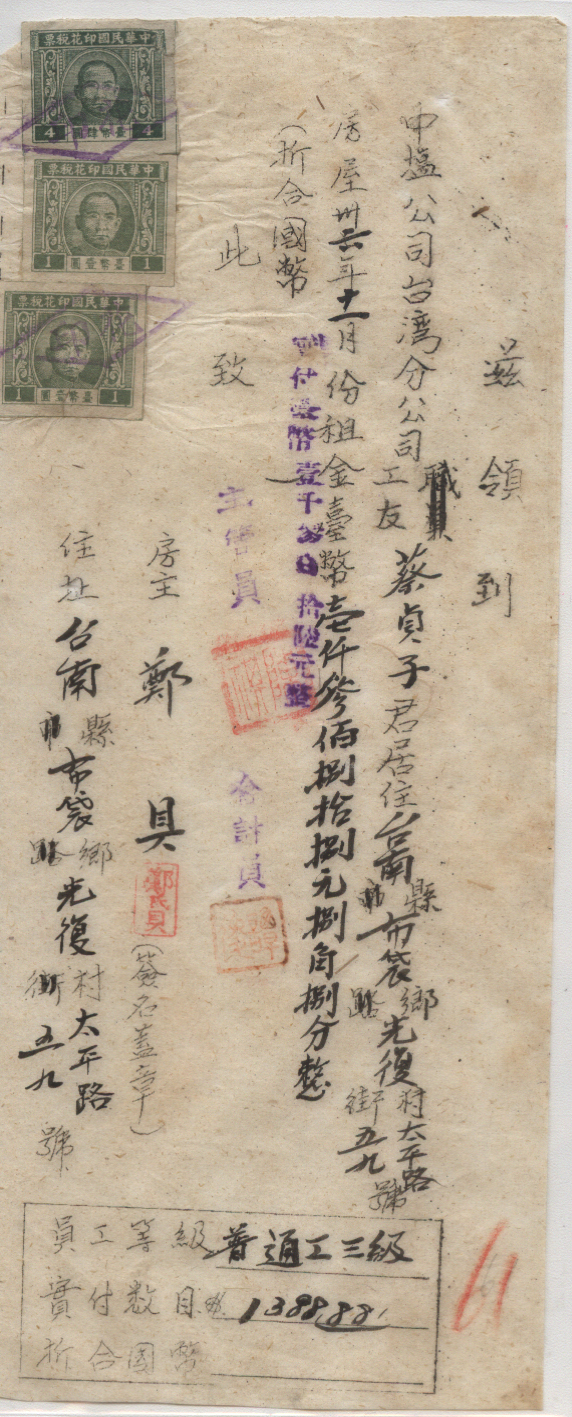 茲領到
中塩公司台湾分公司
職員
工友
蔡貞子君居住台南縣市布袋鄉路光復村街太平路五九號
房屋卅六年十一月份租金臺幣壱仟參佰捌拾捌元捌角捌分整
(折合國幣
付臺幣壹千 拾陸元整
此致
主管員
會計員
房主 鄭具(簽名蓋章)
鄭氏具
住址台南縣市布袋鄉路光復村街太平路五九號
員工等級 普通工三級
實付數目 1388.88
折合國幣
61
中華民國印花稅票
4 臺幣肆圓 4
中華民國印花稅票
1 臺幣壹圓 1
中華民國印花稅票
1 臺幣壹圓 1